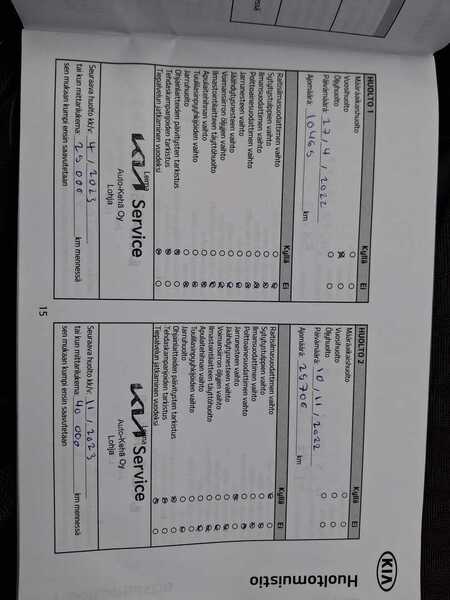 KIA
Huoltomuistio
HUOLTO 1
Kyllä Ei
Määräaikaishuolto
Vuosihuolto
Öljyhuolto
Päivämäärä: 27/4/2022
Ajomäärä: 10465 km
Kyllä Ei
Raitisilmasuodattimen vaihto
Sytytystulppien vaihto
Ilmansuodattimen vaihto
Polttoainesuodattimen vaihto
Jarrunesteen vaihto
Jäähdytysnesteen vaihto
Voimansiirron öljyjen vaihto
Ilmastointilaitteen täyttöhuolto
Apulaitehihnan vaihto
Tuulilasinpyyhkijöiden vaihto
Jarruhuolto
Ohjainlaitteiden päivitysten tarkistus
Tehdaskampanjoiden tarkistus
Tiepalvelun jatkaminen vuodeksi
Leima
KIA Service
Auto-Kehä Oy
Lohja
Seuraava huolto kk/v: 4/2023
tai kun mittarilukema: 25 000 km mennessä
sen mukaan kumpi ensin saavutetaan
HUOLTO 2
Kyllä Ei
Määräaikaishuolto
Vuosihuolto
Öljyhuolto
Päivämäärä: 10/11/2022
Ajomäärä: 25706 km
Kyllä Ei
Raitisilmasuodattimen vaihto
Sytytystulppien vaihto
Ilmansuodattimen vaihto
Polttoainesuodattimen vaihto
Jarrunesteen vaihto
Jäähdytysnesteen vaihto
Voimansiirron öljyjen vaihto
Ilmastointilaitteen täyttöhuolto
Apulaitehihnan vaihto
Tuulilasinpyyhkijöiden vaihto
Jarruhuolto
Ohjainlaitteiden päivitysten tarkistus
Tehdaskampanjoiden tarkistus
Tiepalvelun jatkaminen vuodeksi
Leima
KIA Service
Auto-Kehä Oy
Lohja
Seuraava huolto kk/v: 11/2023
tai kun mittarilukema: 40 000 km mennessä
sen mukaan kumpi ensin saavutetaan
15
mennessä